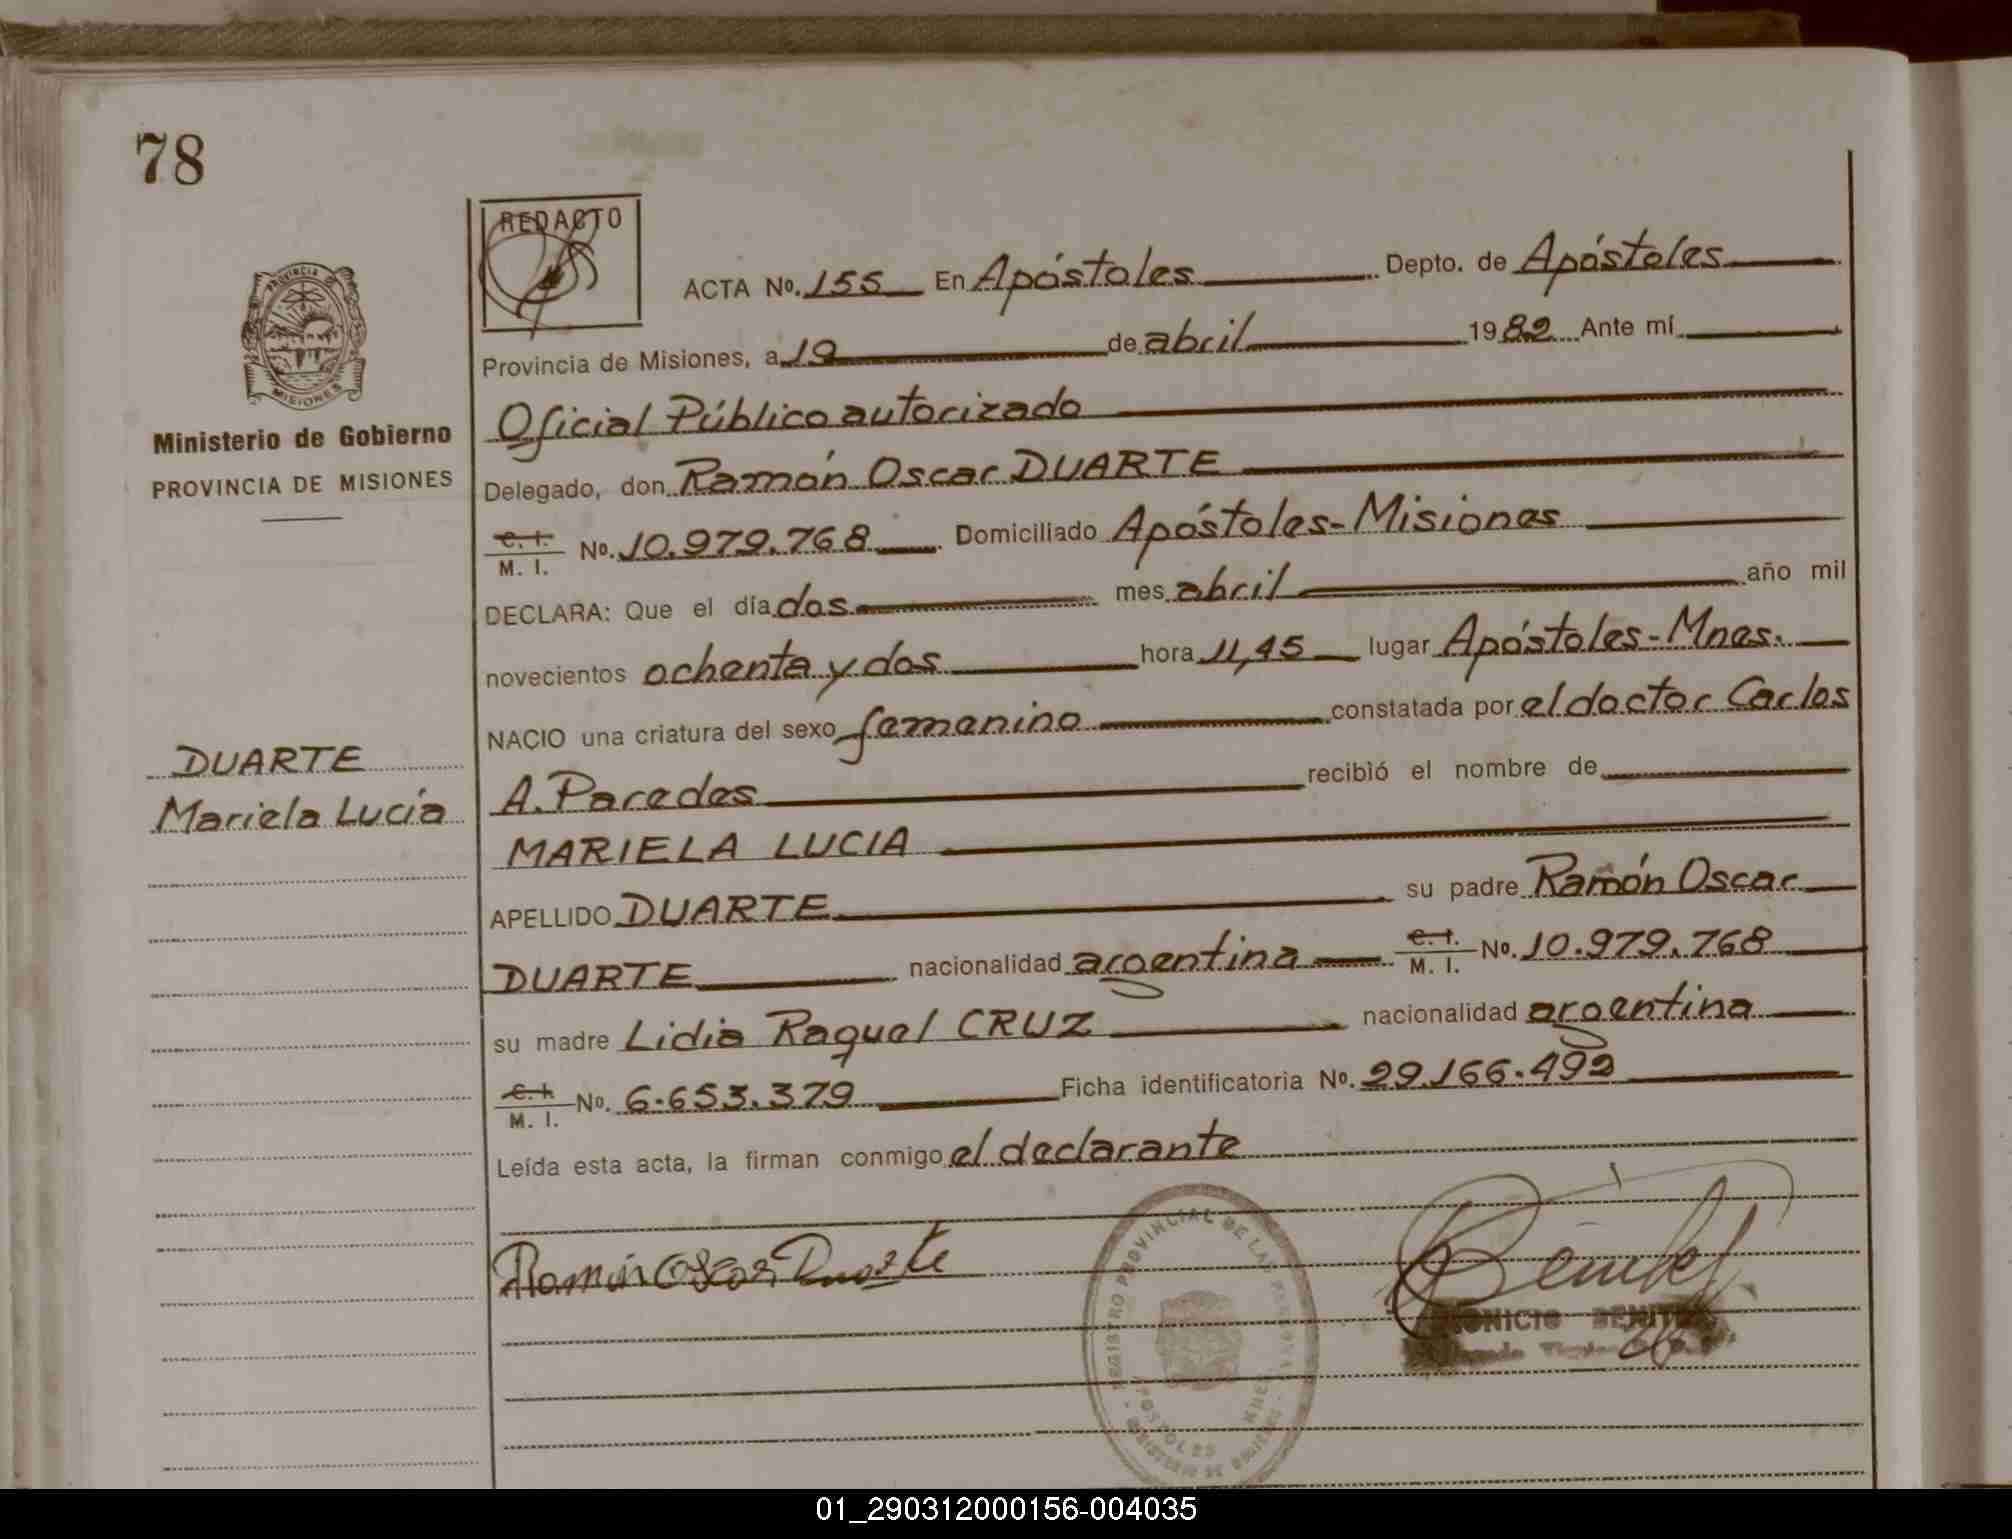 78
REDACTO
ACTA No. 155 En Apóstoles Depto. de Apóstoles
Provincia de Misiones, a 19 de abril 1982 Ante mí
Oficial Público autorizado
PROVINCIA
MISIONES
Ministerio de Gobierno
PROVINCIA DE MISIONES
Delegado, don Ramón Oscar DUARTE
C. I.
M. I. No. 10.979.768 Domiciliado Apóstoles-Misiones
DECLARA: Que el día dos mes abril año mil
novecientos ochenta y dos hora 11,45 lugar Apóstoles-Mnes.
NACIO una criatura del sexo femenino constatada por el doctor Carlos
A. Paredes recibió el nombre de
DUARTE
Mariela Lucía
MARIELA LUCIA
APELLIDO DUARTE su padre Ramón Oscar
DUARTE nacionalidad argentina C. I. M. I. No. 10.979.768
su madre Lidia Raquel CRUZ nacionalidad argentina
C. I.
M. I. No. 6.653.379 Ficha identificatoria No. 29.166.492
Leída esta acta, la firman conmigo el declarante
Ramón Oscar Duarte
REGISTRO PROVINCIAL DE LAS PERSONAS
APOSTOLES MNES.
MINISTERIO DE GOBIERNO
BENITEZ
01_290312000156-004035